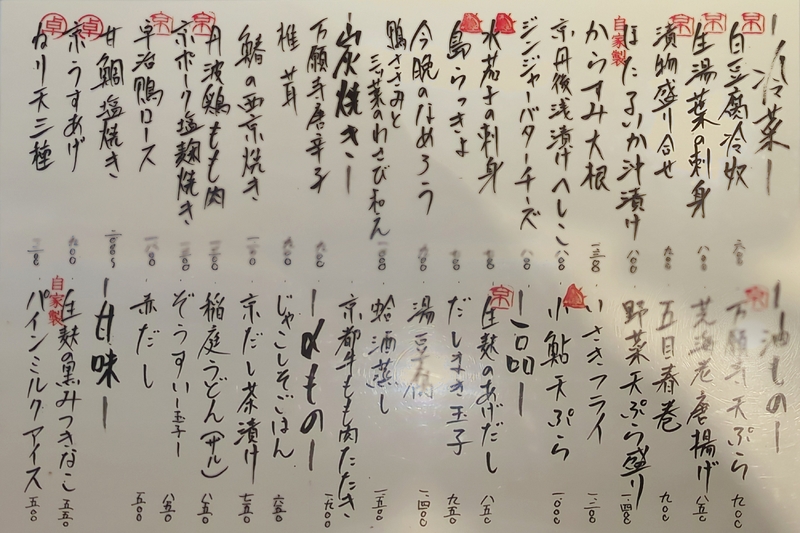 ー冷菜ー
京 白豆腐冷奴 六〇〇
京 生湯葉の刺身 八〇〇
京 漬物盛り合せ 九〇〇
自家製 ほたるいか汁漬け 八〇〇
からすみ大根
京丹後浅漬けへしこ 八〇〇
ジンジャーバターチーズ 八〇〇
水茄子の刺身 七〇〇
島らっきょ 七〇〇
今晩のなめろう 九〇〇
鴨ささみと三ツ葉のわさび和え
ー炭焼きー
万願寺唐辛子 九〇〇
椎茸 九〇〇
鰆の西京焼き
京 丹波鶏もも肉
京 京ポーク塩麹焼き
早治鴨ロース 一八〇〇
卓 甘鯛塩焼き
卓 京うすあげ 九〇〇
ねり天三種
ー油ものー
京 万願寺天ぷら 九〇〇
芝海老唐揚げ 八五〇
五目春巻 九〇〇
野菜天ぷら盛り 一、四〇〇
いさきフライ
小鮎天ぷら 一、〇〇〇
ー一品ー
京 生麩のあげだし 八五〇
だしまき玉子 九五〇
湯豆腐 一、四〇〇
蛤酒蒸し 一、五〇〇
京都牛もも肉たたき 一、九〇〇
ー〆ものー
じゃこしそごはん 六五〇
京だし茶漬け 七五〇
稲庭うどん(ザル) 八五〇
ぞうすいー玉子ー 八五〇
赤だし 五〇〇
ー甘味ー
自家製 生麩の黒みつきなこ 五五〇
パインミルクアイス 五〇〇